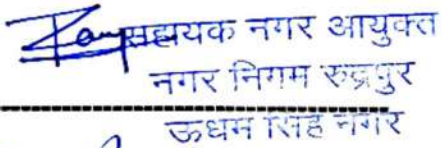 सहायक नगर आयुक्त
नगर निगम रुद्रपुर
ऊधम सिंह नगर